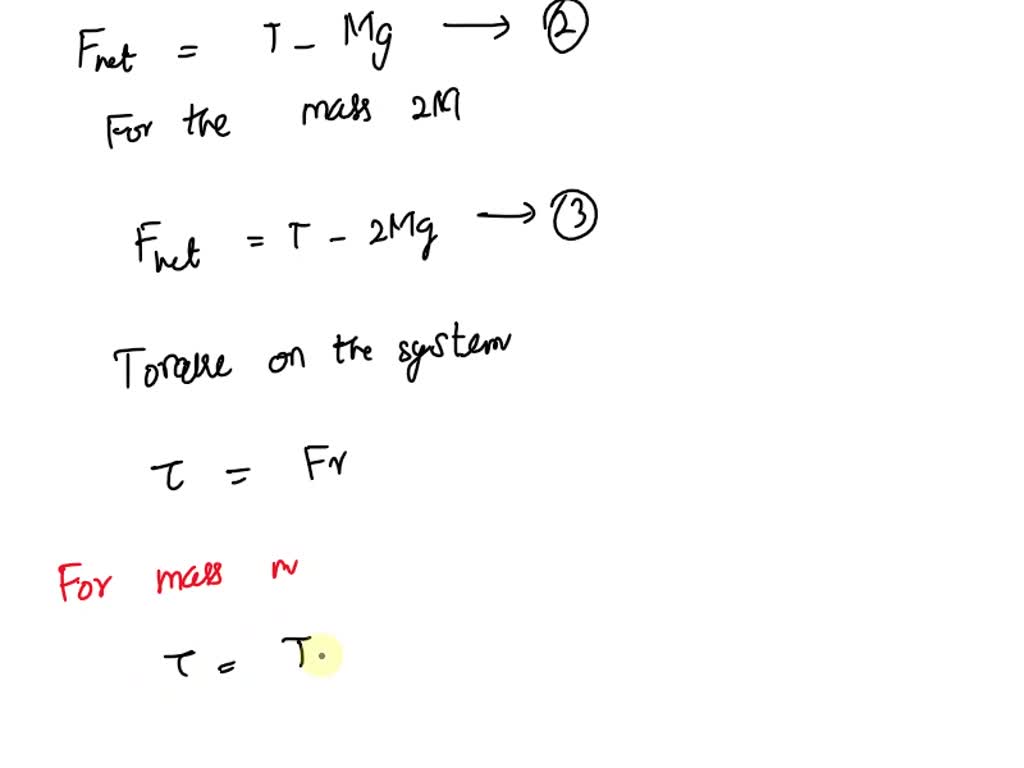 Fnet = T - Mg → ②
For the mass 2M
Fnet = T - 2Mg → ③
Torque on the system
τ = Fr
For mass m
τ = T